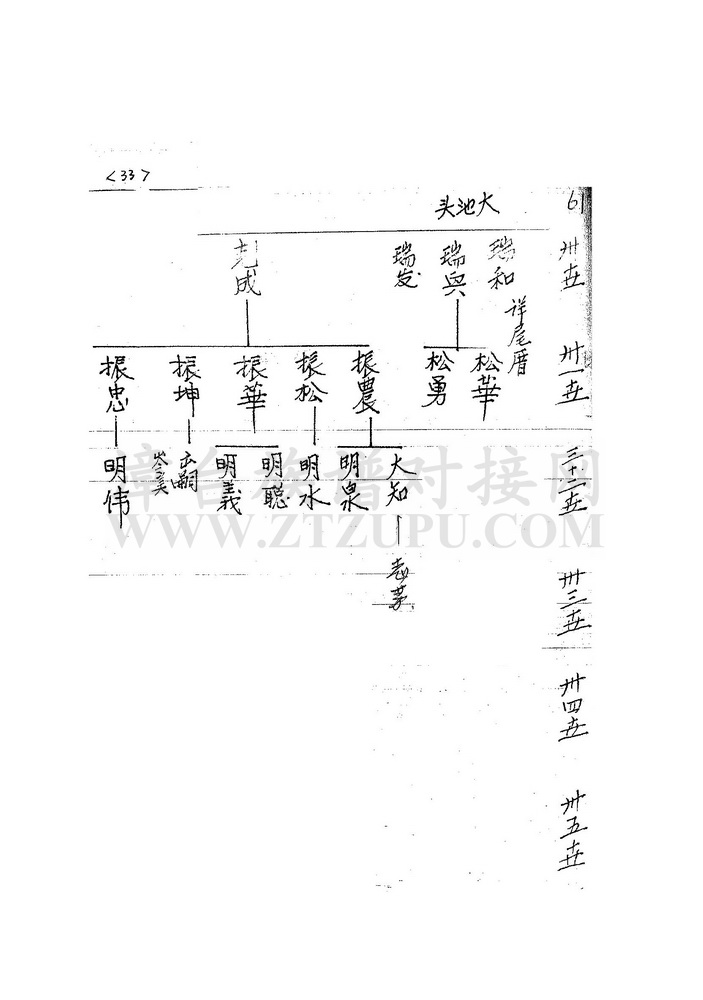 <33>
61
大池头
卅世
瑞和
详尾厝
瑞兴
瑞发
成
卅一世
松華
松勇
振農
振松
振華
振坤
振忠
三十二世
大知
明泉
明水
明聪
明義
出嗣
岑美
明伟
卅三世
卅四世
卅五世
漳台族谱对接网
WWW.ZTZUPU.COM